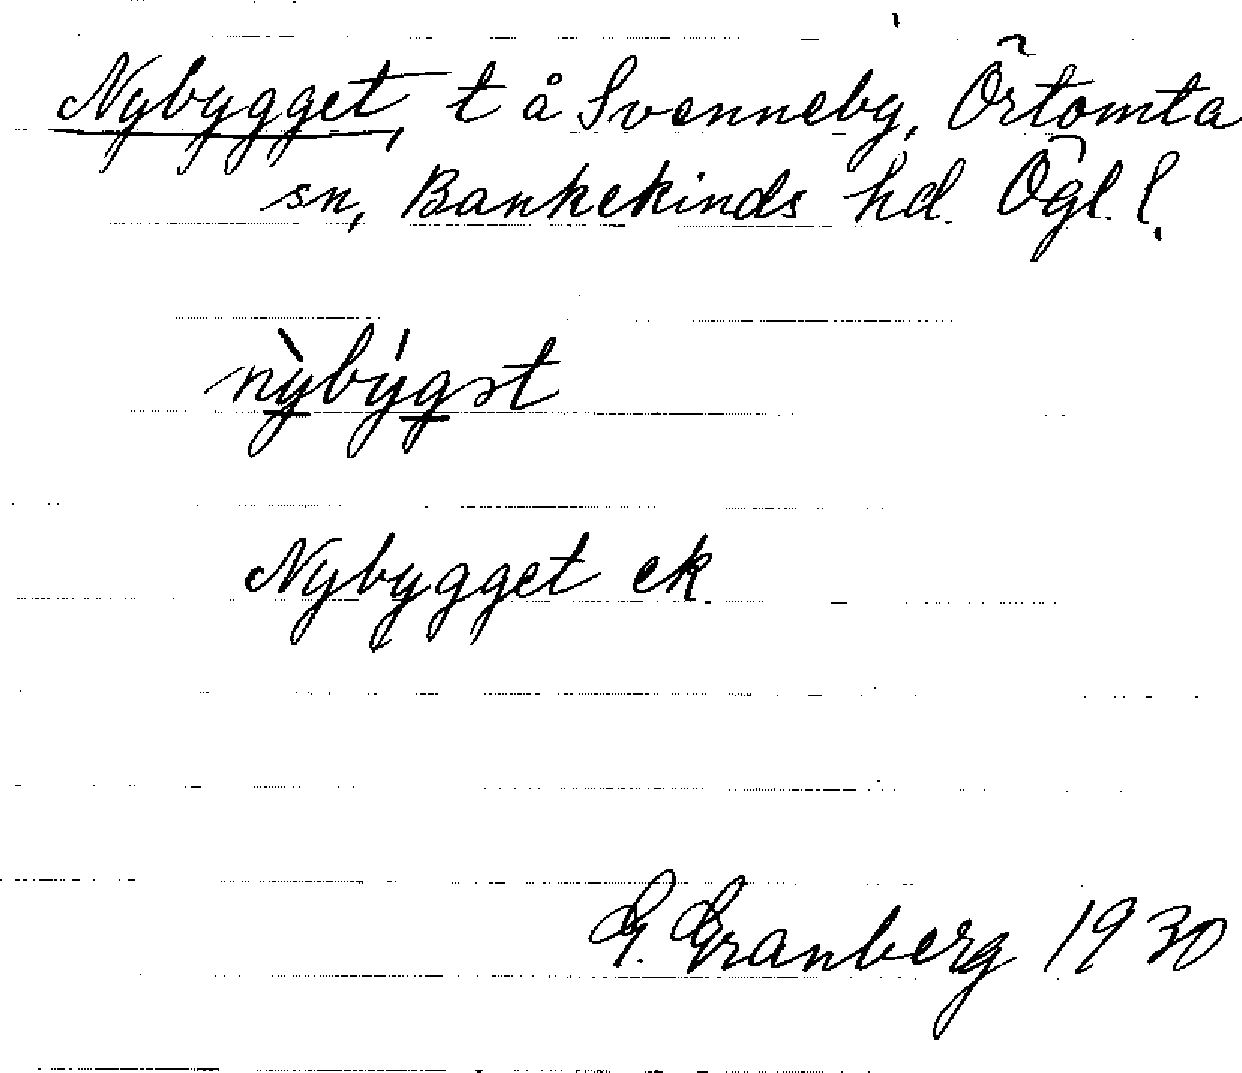 Nybygget, t å Svenneby, Örtomta
sn, Bankekinds hd. Ögl. l.
nỳbýgət
Nybygget ek
G. Granberg 1930